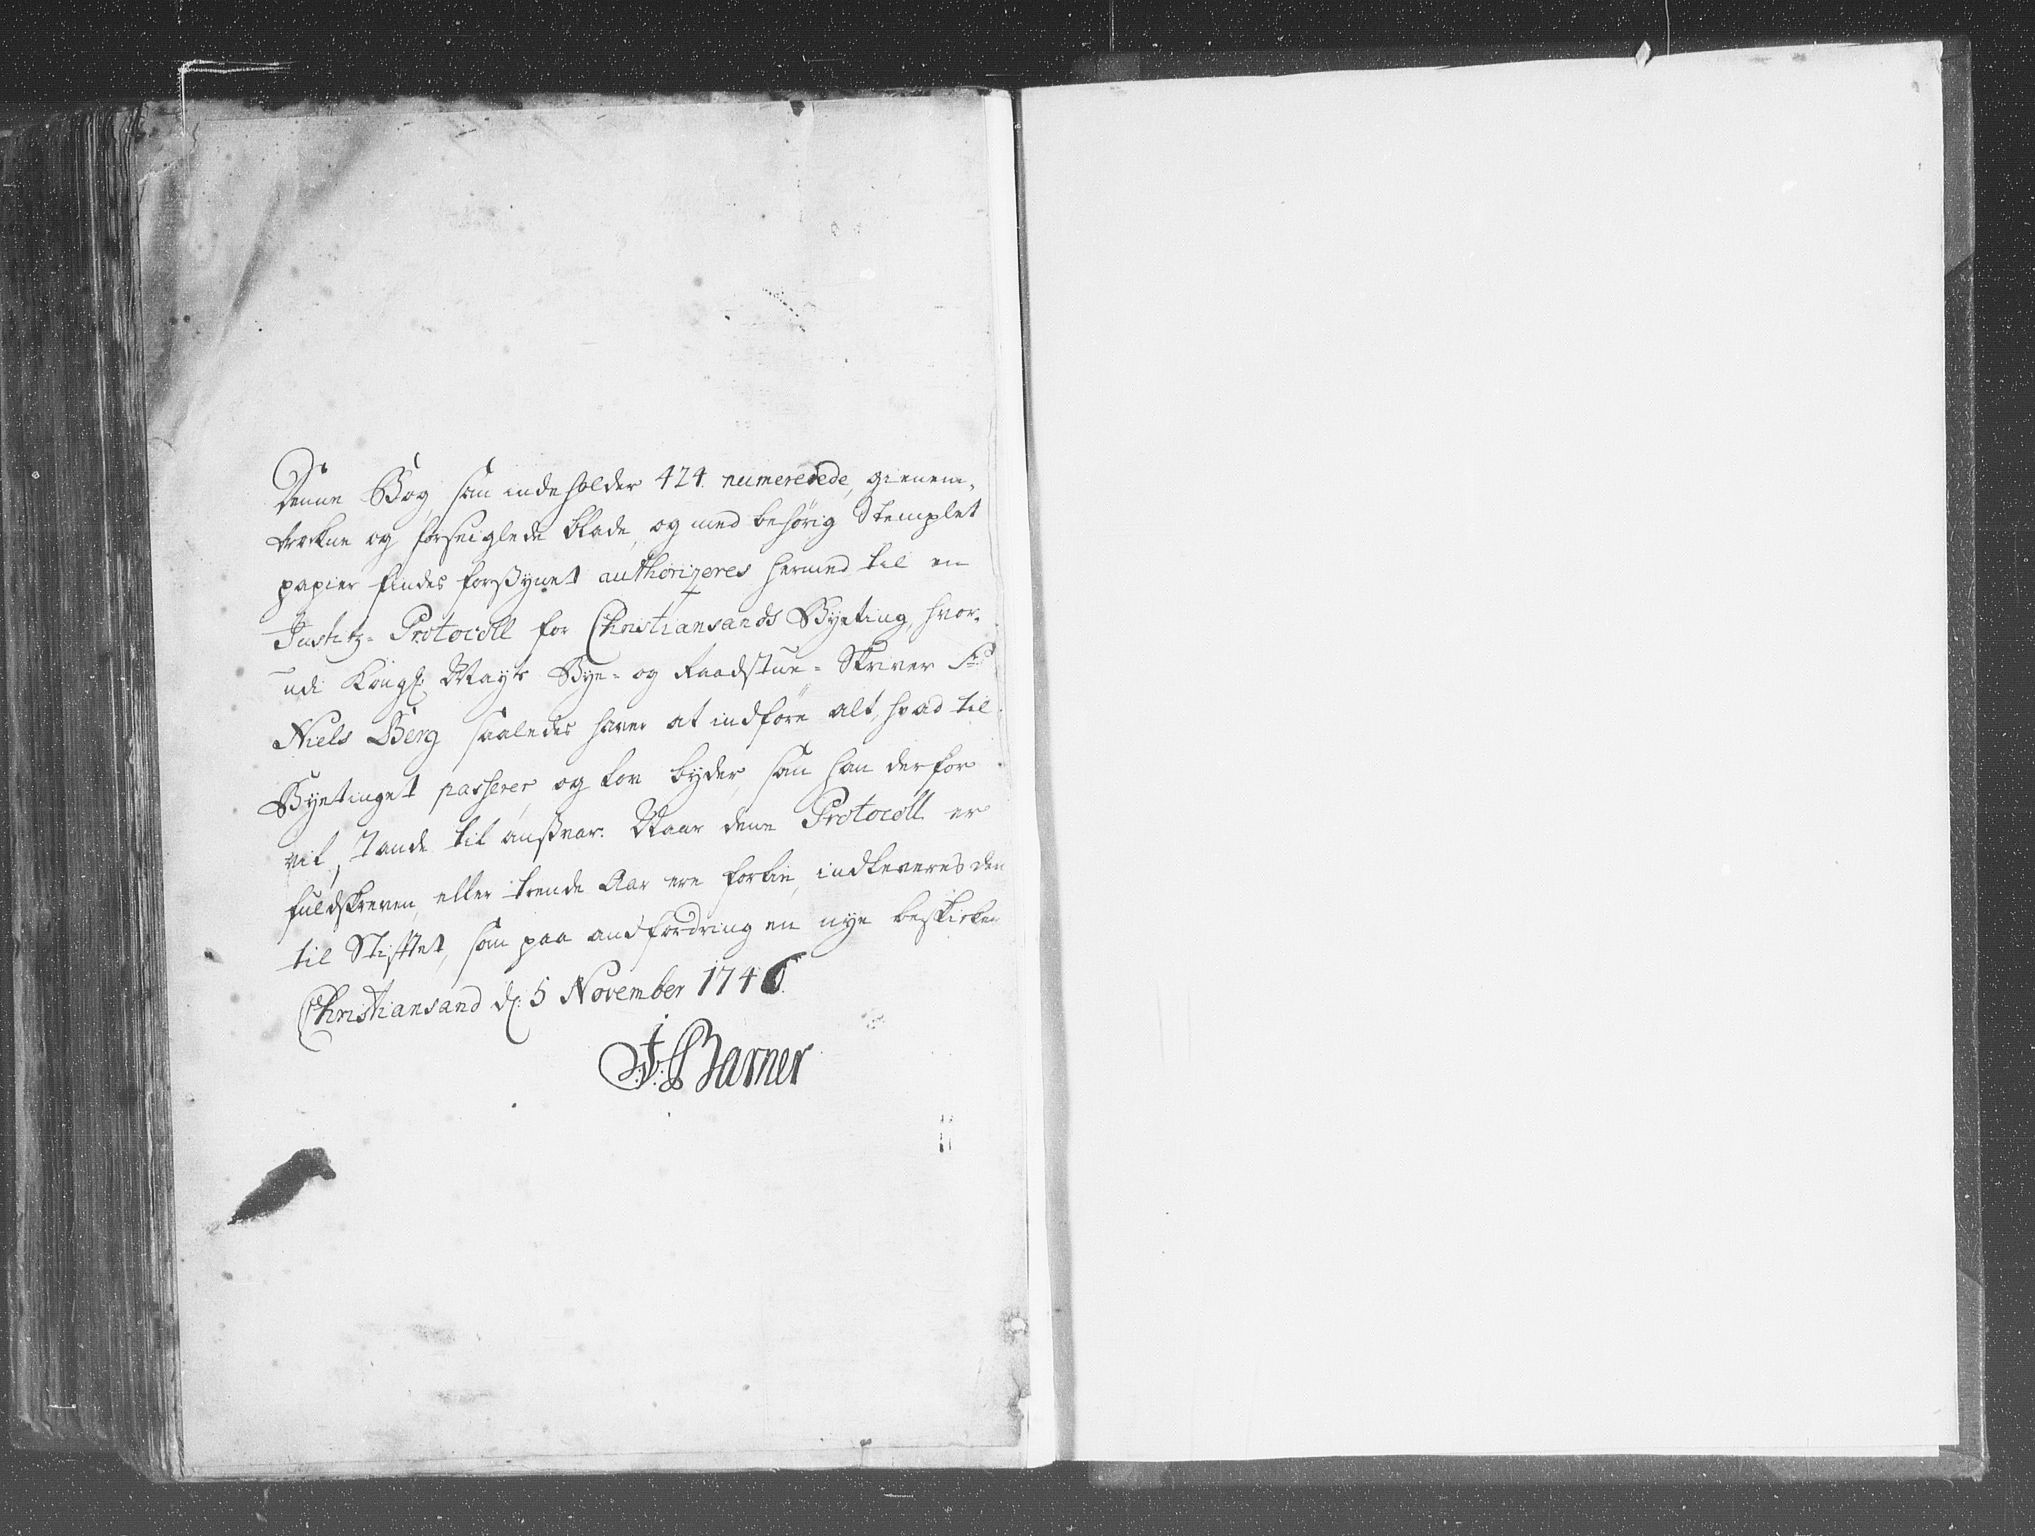 Denne Bog, som indeholder 424 numererede, gienem-
trækne og forseiglede blade, og med behörig Stemplet
papier findes forsÿynet authorizeres hermed til en
Justitz-Protocoll for Christiansands Byeting, hvor-
udi Kongl: Mayts Bye- og Raadstue-Skriver Sr
Niels Berg saaledes haver at indføre alt, hvad til
Byetinget passerer, og lov byder som han derfor
vil stande til ansvar. Naar denne Protocoll er
fuldskreven, eller trende Aar ere forbie, indleveres den
til Stiftet, som paa andfordring en nye beskicker
Christiansand d: 5 November 1746
J: F: Barner